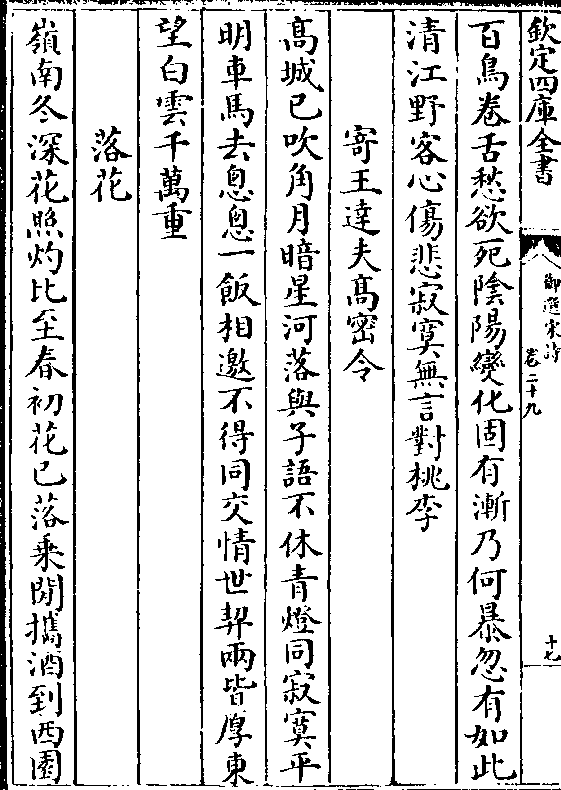 欽定四庫全書
御選宋詩
卷二十九
十七
百鳥卷舌愁欲死陰陽變化固有漸乃何暴忽有如此
清江野客心傷悲寂寞無言對桃李
寄王達夫高密令
高城已吹角月暗星河落與子語不休青燈同寂寞平
明車馬去怱怱一飯相邀不得同交情世契兩皆厚東
望白雲千萬重
落花
嶺南冬深花照灼比至春初花已落乗閒攜酒到西園